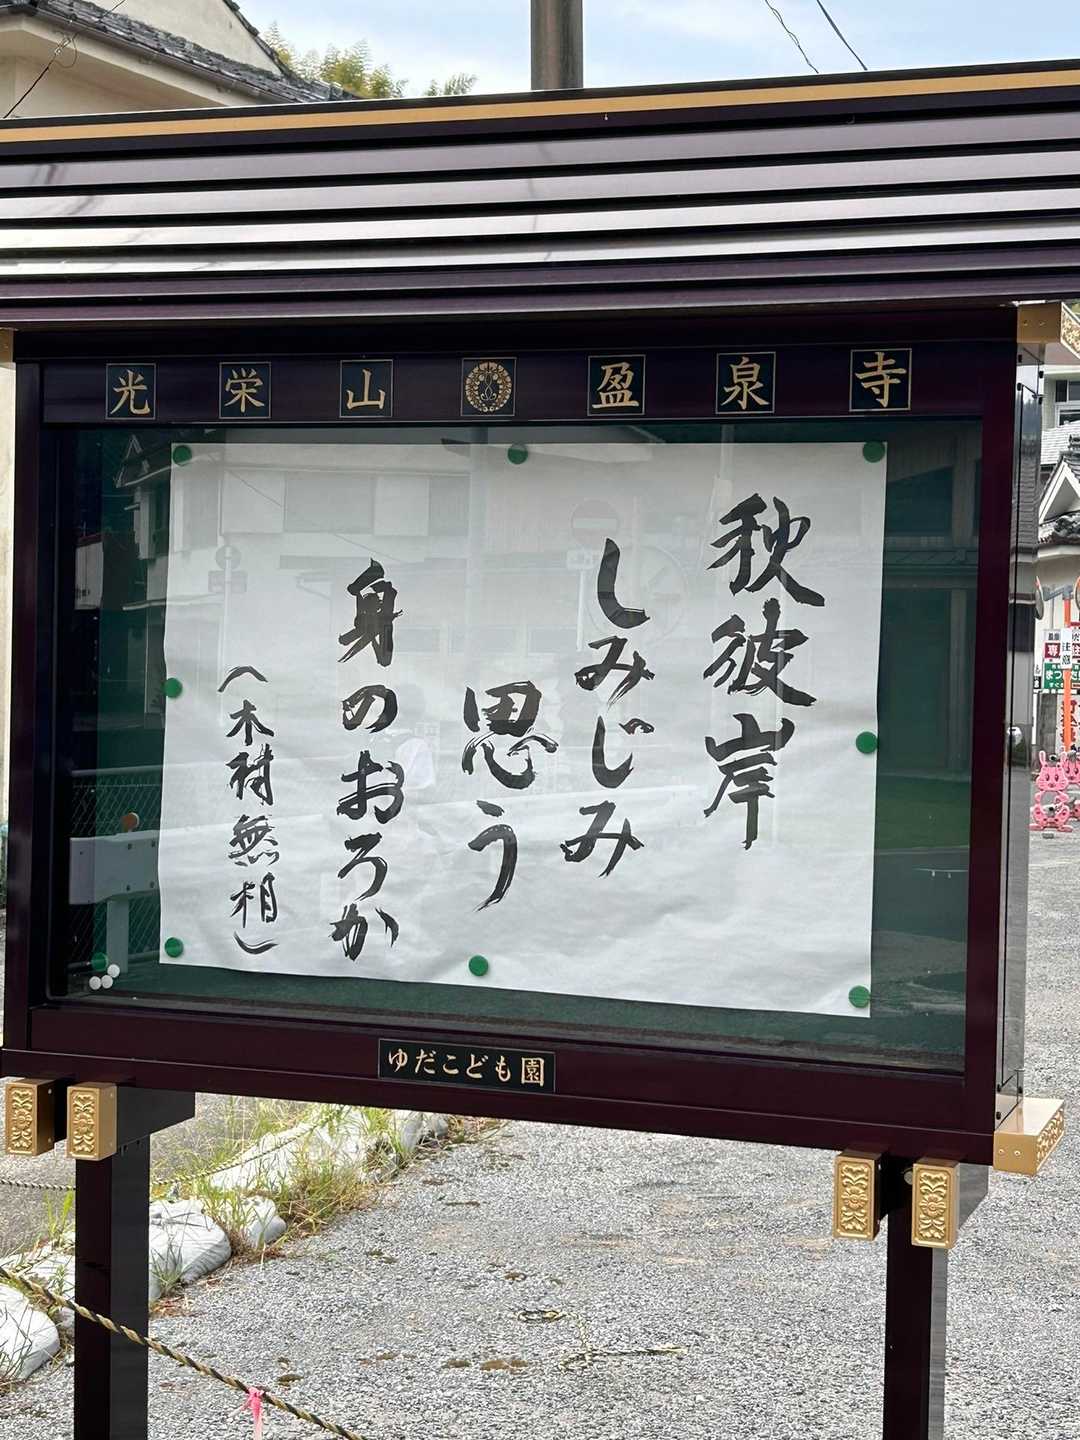 光栄山 盈泉寺
秋彼岸
しみじみ
思う
身のおろか
(木村無相)
ゆだこども園